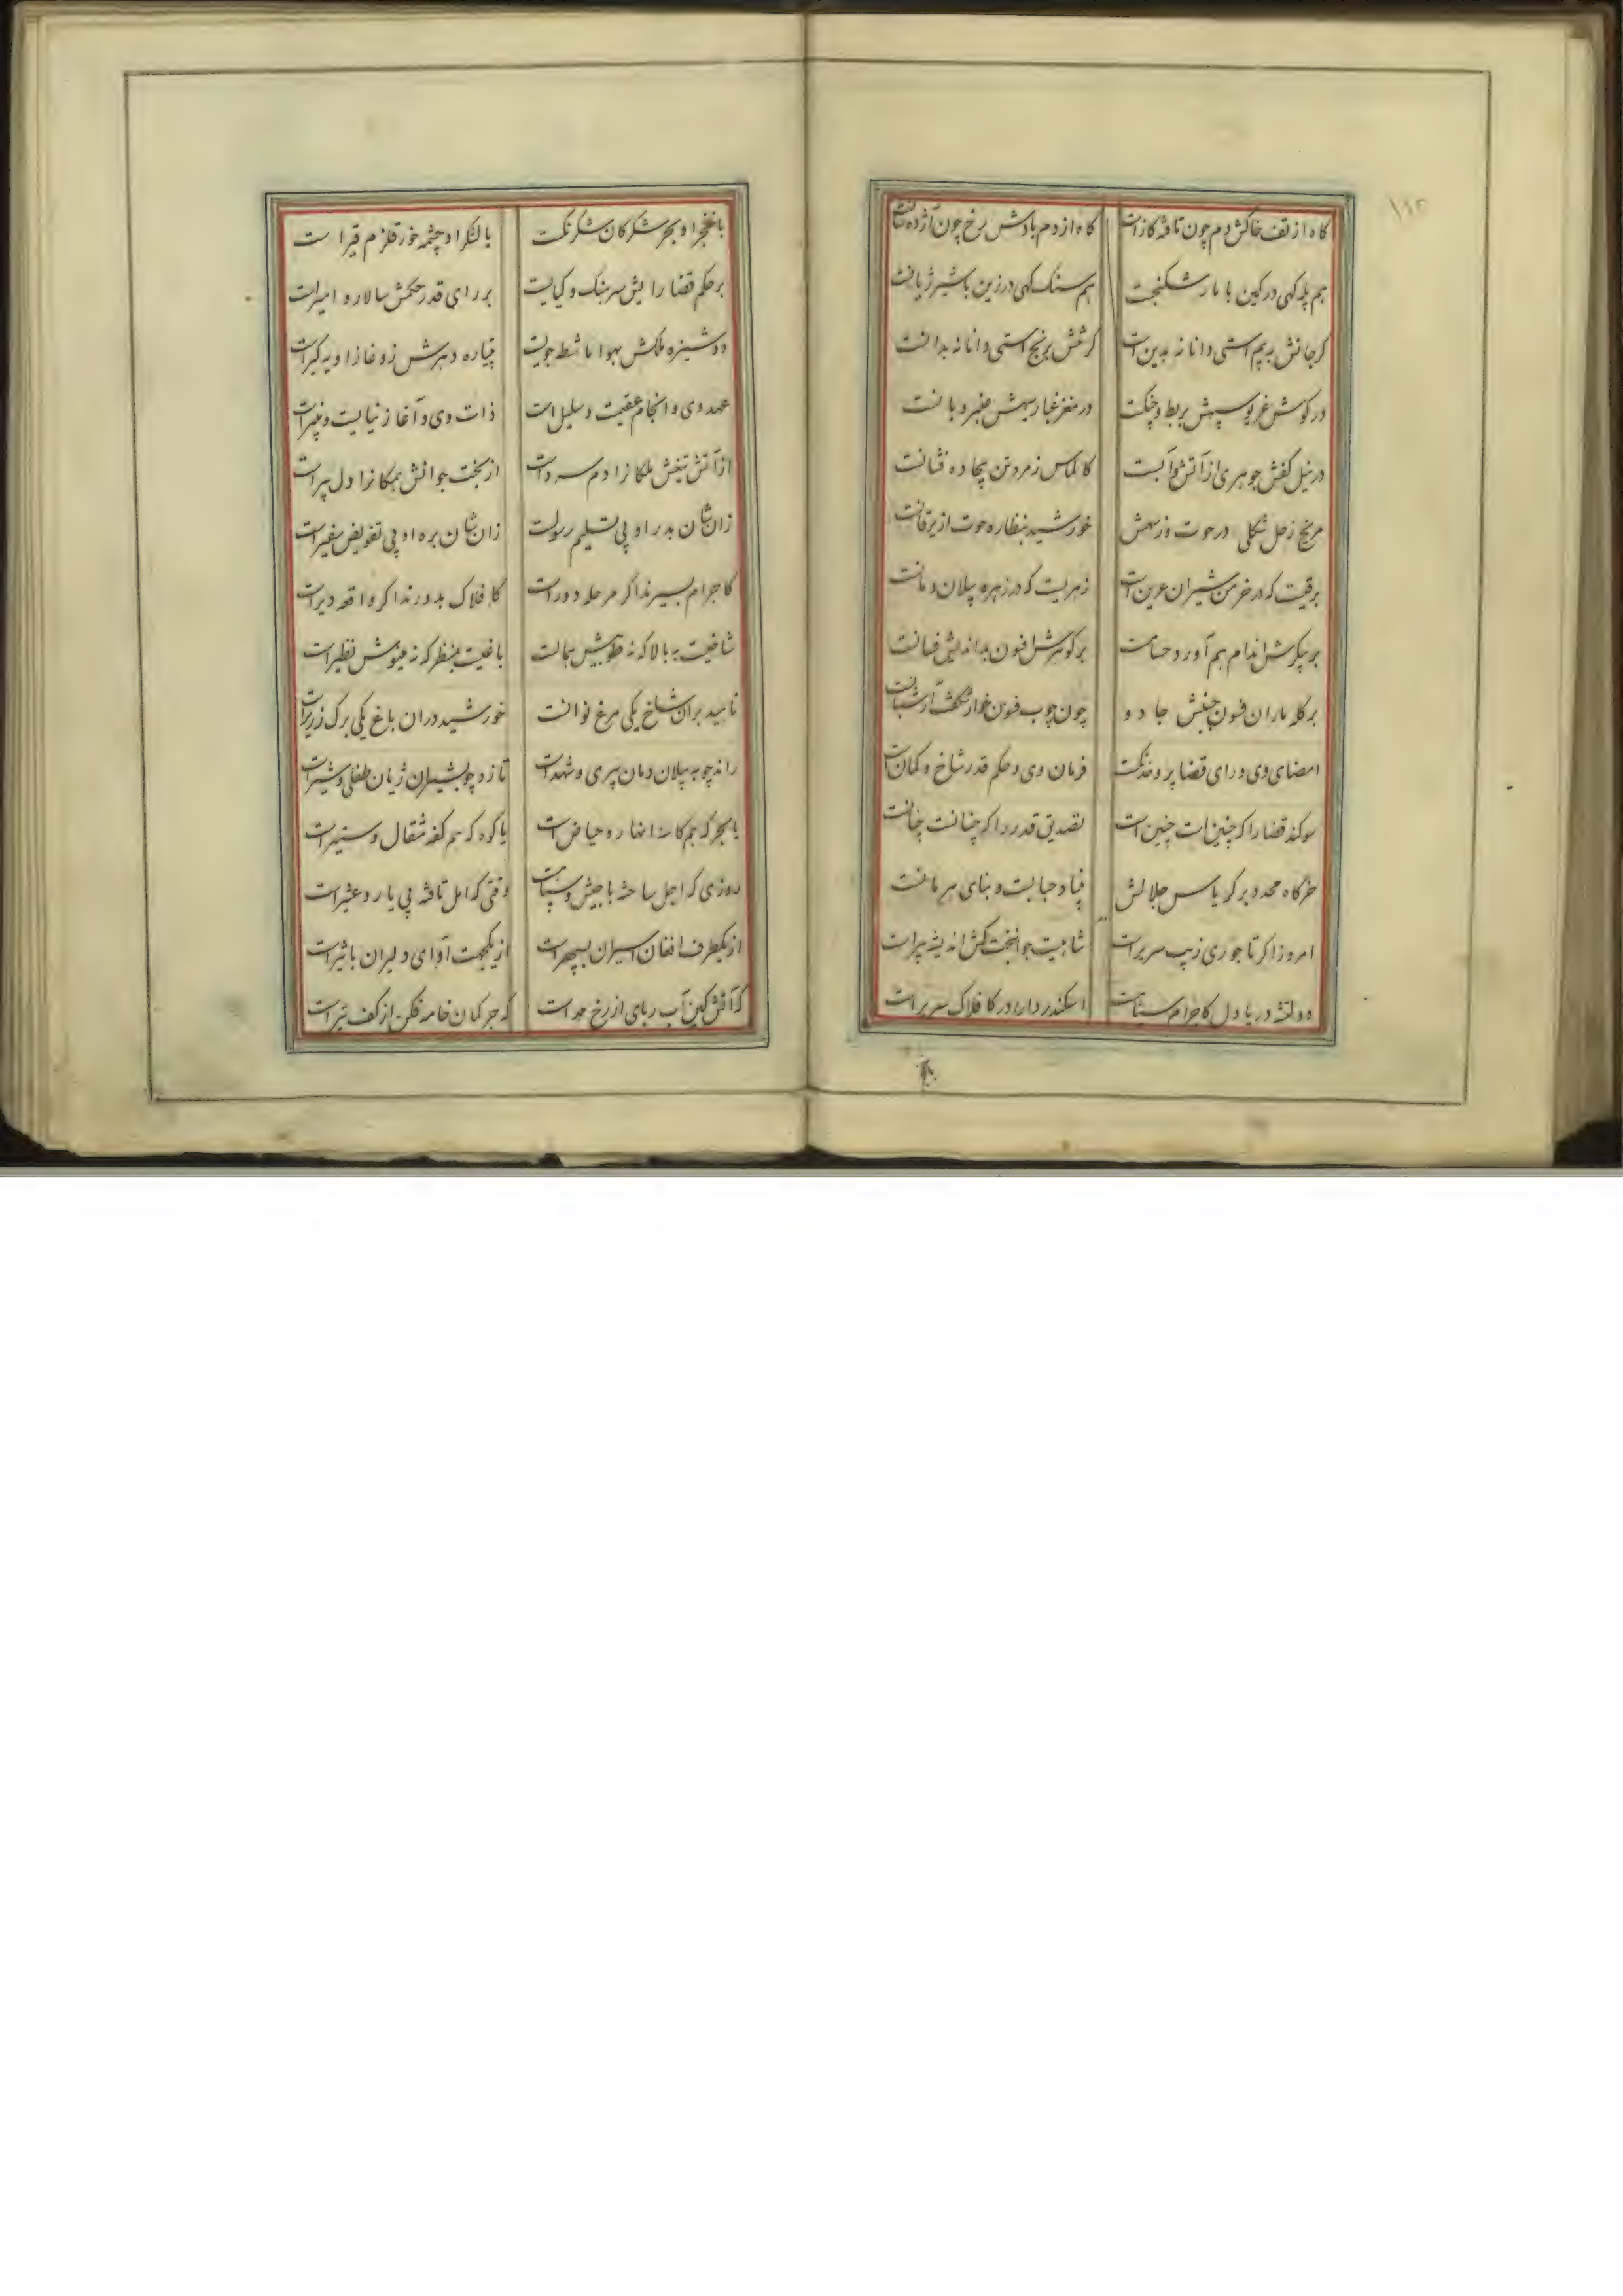 ۱۱۲
گاه از تف خاکش دم چون تافته گاز است گاه از دم بادش رخ چون آژده نانست
هم پله کهی در کین با مار شکنجست هم سنگ کهی در زین با شیر ژیانست
گر جانش به بیم استی دانا نه بدین است گر تنش برنج استی دانا نه بدانست
در گوش غریو سپهش بربط و چنگست در مغز غبار سپهش عنبر و بانست
در نیل کفش جوهری از آتش و آبست کالماس زمرد تن بیجاده فشانست
مریخ زحل شکلی در حوت وز سهمش خورشید بنظاره حوت از یرقانست
برقیست که در خرمن شیران عرین است زهریست که در زهره پیلان دمانست
بر پیکرش اندام هم آورد حسامست بر گوهرش افسون بداندیش فسانست
بر کله ماران فسون جنبش جادو چون چوب فسون خوار شگفت ار شبانست
امضای وی و رای قضا پر و خدنگست فرمان وی و حکم قدر شاخ و کمان است
سوگند قضا را که چنین است چنین است تصدیق قدر را که چنانست چنانست
خرگاه محدد بر کریاس جلالش بنیاد حبابست و بنای هرمانست
امروز اگر تاجوری زیب سریر است شاهیست جوانبخت کش اندیشه پیر است
دولتشه دریا دل کاجرام سپاهست اسکندر دارا در کافلاک سریر است
با خنجر او بحر شمرکان شمر نگست با لنگر او چشمه خور قلزم قیر است
بر حکم قضا رایش سرهنگ و کیایست بر رای قدر حکمش سالار و امیر است
دوشیزه ملکش بهوا ماشطه جویست پتیاره دهرش ز وغا زاویه گیر است
عهد وی و انجام عقیمست و سلیل است ذات وی و آغاز نیایست و نبیر است
از آتش تیغش ملکانرا دم سرد است از بخت جوانش همگانرا دل پیر است
زان شان بدر او پی تسلیم رسولست زان شان بره او پی تفویض سفیر است
کاجرام بسیرند اگر مرحله دور است کافلاک بدورند اگر واقعه دیر است
شاخیست به بالا که نه طوبیش همالست باغیست بمنظر که نه مینوش نظیر است
ناهید بران شاخ یکی مرغ نوانست خورشید دران باغ یکی برگ زریر است
راند چو به پیلان دمان پیری و شهد است تازد چو بشیران ژیان طفلی و شیر است
یا بحر که هم کاسه انهار و حیاض است یا کوه که هم کفه مثقال و ستیر است
روزی که اجل ساخته با جیش و سپاهست وقتی که امل تافته پی یار و عشیر است
از یکطرف افغان اسیران بسپهر است از یکجهت آوای دلیران باثیر است
که آتش کین آب ربای از رخ مهر است که چرخ کمان خامه فکن از کف تیر است